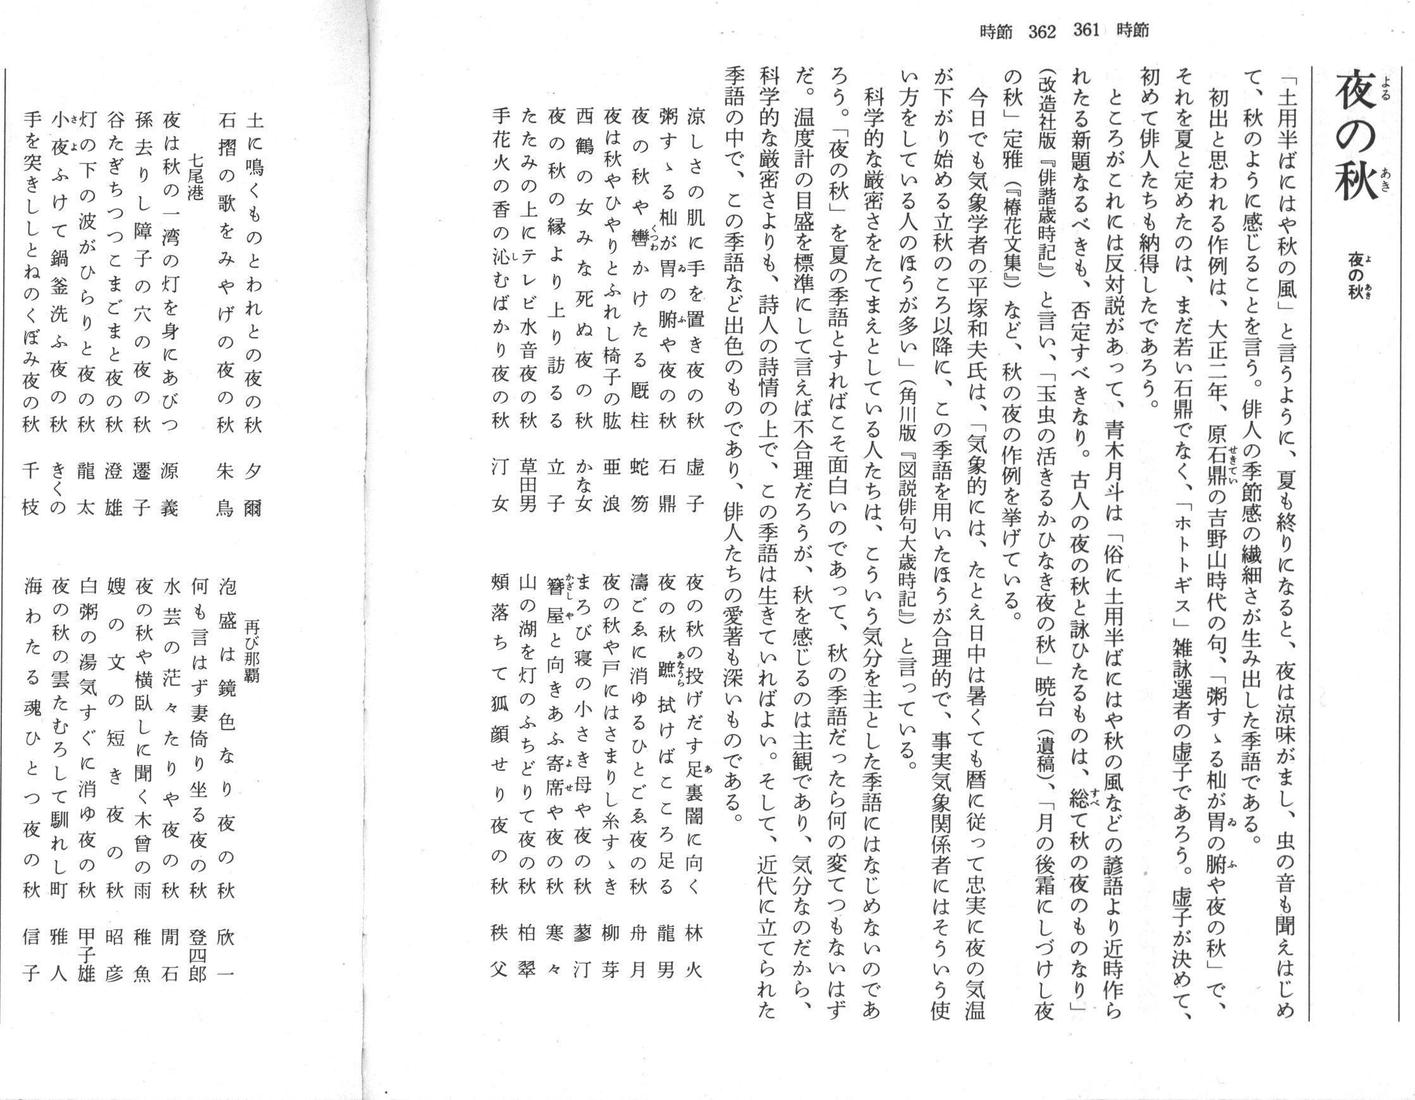 時節 362 361 時節
夜の秋 夜の秋
「土用半ばにはや秋の風」と言うように、夏も終りになると、夜は涼味がまし、虫の音も聞えはじめ
て、秋のように感じることを言う。俳人の季節感の繊細さが生み出した季語である。
初出と思われる作例は、大正二年、原石鼎の吉野山時代の句、「粥すゝる杣が胃の腑や夜の秋」で、
それを夏と定めたのは、まだ若い石鼎でなく、「ホトトギス」雑詠選者の虚子であろう。虚子が決めて、
初めて俳人たちも納得したであろう。
ところがこれには反対説があって、青木月斗は「俗に土用半ばにはや秋の風などの諺語より近時作ら
れたる新題なるべきも、否定すべきなり。古人の夜の秋と詠ひたるものは、総て秋の夜のものなり」
（改造社版『俳諧歳時記』）と言い、「玉虫の活きるかひなき夜の秋」暁台（遺稿）、「月の後霜にしづけし夜
の秋」定雅（『椿花文集』）など、秋の夜の作例を挙げている。
今日でも気象学者の平塚和夫氏は、「気象的には、たとえ日中は暑くても暦に従って忠実に夜の気温
が下がり始める立秋のころ以降に、この季語を用いたほうが合理的で、事実気象関係者にはそういう使
い方をしている人のほうが多い」（角川版『図説俳句大歳時記』）と言っている。
科学的な厳密さをたてまえとしている人たちは、こういう気分を主とした季語にはなじめないのであ
ろう。「夜の秋」を夏の季語とすればこそ面白いのであって、秋の季語だったら何の変てつもないはず
だ。温度計の目盛を標準にして言えば不合理だろうが、秋を感じるのは主観であり、気分なのだから、
科学的な厳密さよりも、詩人の詩情の上で、この季語は生きていればよい。そして、近代に立てられた
季語の中で、この季語など出色のものであり、俳人たちの愛著も深いものである。
涼しさの肌に手を置き夜の秋 虚子
粥すゝる杣が胃の腑や夜の秋 石鼎
夜の秋や轡かけたる厩柱 蛇笏
夜は秋やひやりとふれし椅子の肱 亜浪
西鶴の女みな死ぬ夜の秋 かな女
夜の秋の縁より上り訪るる 立子
たたみの上にテレビ水音夜の秋 草田男
手花火の香の沁むばかり夜の秋 汀女
夜の秋の投げだす足裏闇に向く 林火
夜の秋蹠拭けばこころ足る 龍男
濤ごゑに消ゆるひとごゑ夜の秋 舟月
夜の秋や戸にはさまりし糸すゝき 柳芽
まろび寝の小さき母や夜の秋 蓼汀
簪屋と向きあふ寄席や夜の秋 寒々
山の湖を灯のふちどりて夜の秋 柏翠
頰落ちて狐顔せり夜の秋 秩父
土に鳴くものとわれとの夜の秋 夕爾
石摺の歌をみやげの夜の秋 朱鳥
七尾港
夜は秋の一湾の灯を身にあびつ 源義
孫去りし障子の穴の夜の秋 遷子
谷たぎちつつこまごまと夜の秋 澄雄
灯の下の波がひらりと夜の秋 龍太
小夜ふけて鍋釜洗ふ夜の秋 きくの
手を突きししとねのくぼみ夜の秋 千枝
再び那覇
泡盛は鏡色なり夜の秋 欣一
何も言はず妻倚り坐る夜の秋 登四郎
水芸の茫々たりや夜の秋 閒石
夜の秋や横臥しに聞く木曾の雨 稚魚
嫂の文の短き夜の秋 昭彦
白粥の湯気すぐに消ゆ夜の秋 甲子雄
夜の秋の雲たむろして馴れし町 雅人
海わたる魂ひとつ夜の秋 信子